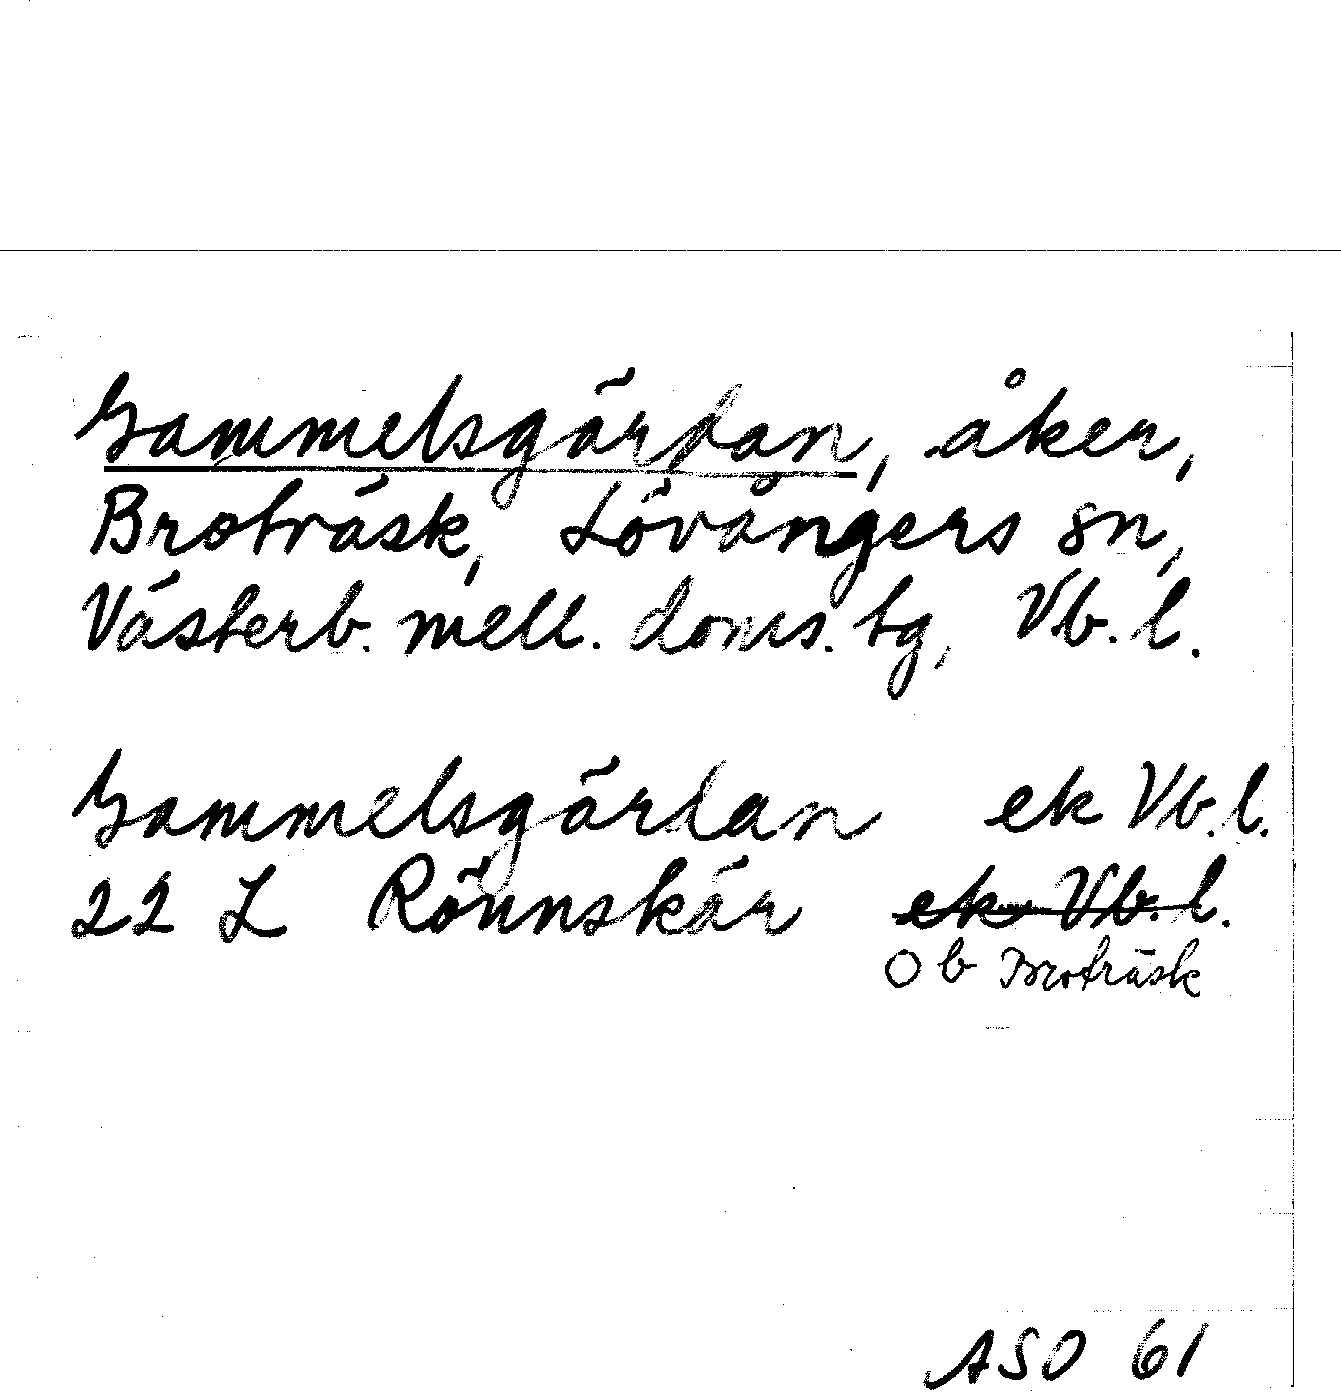 Gammelsgärdan, åker,
Broträsk, Lövångers sn,
Västerb. mell. doms. tg, Vb. l.
Gammelsgärdan ek Vb. l.
22 L Rönnskär ek Vb. l.
O b Broträsk
ASO 61